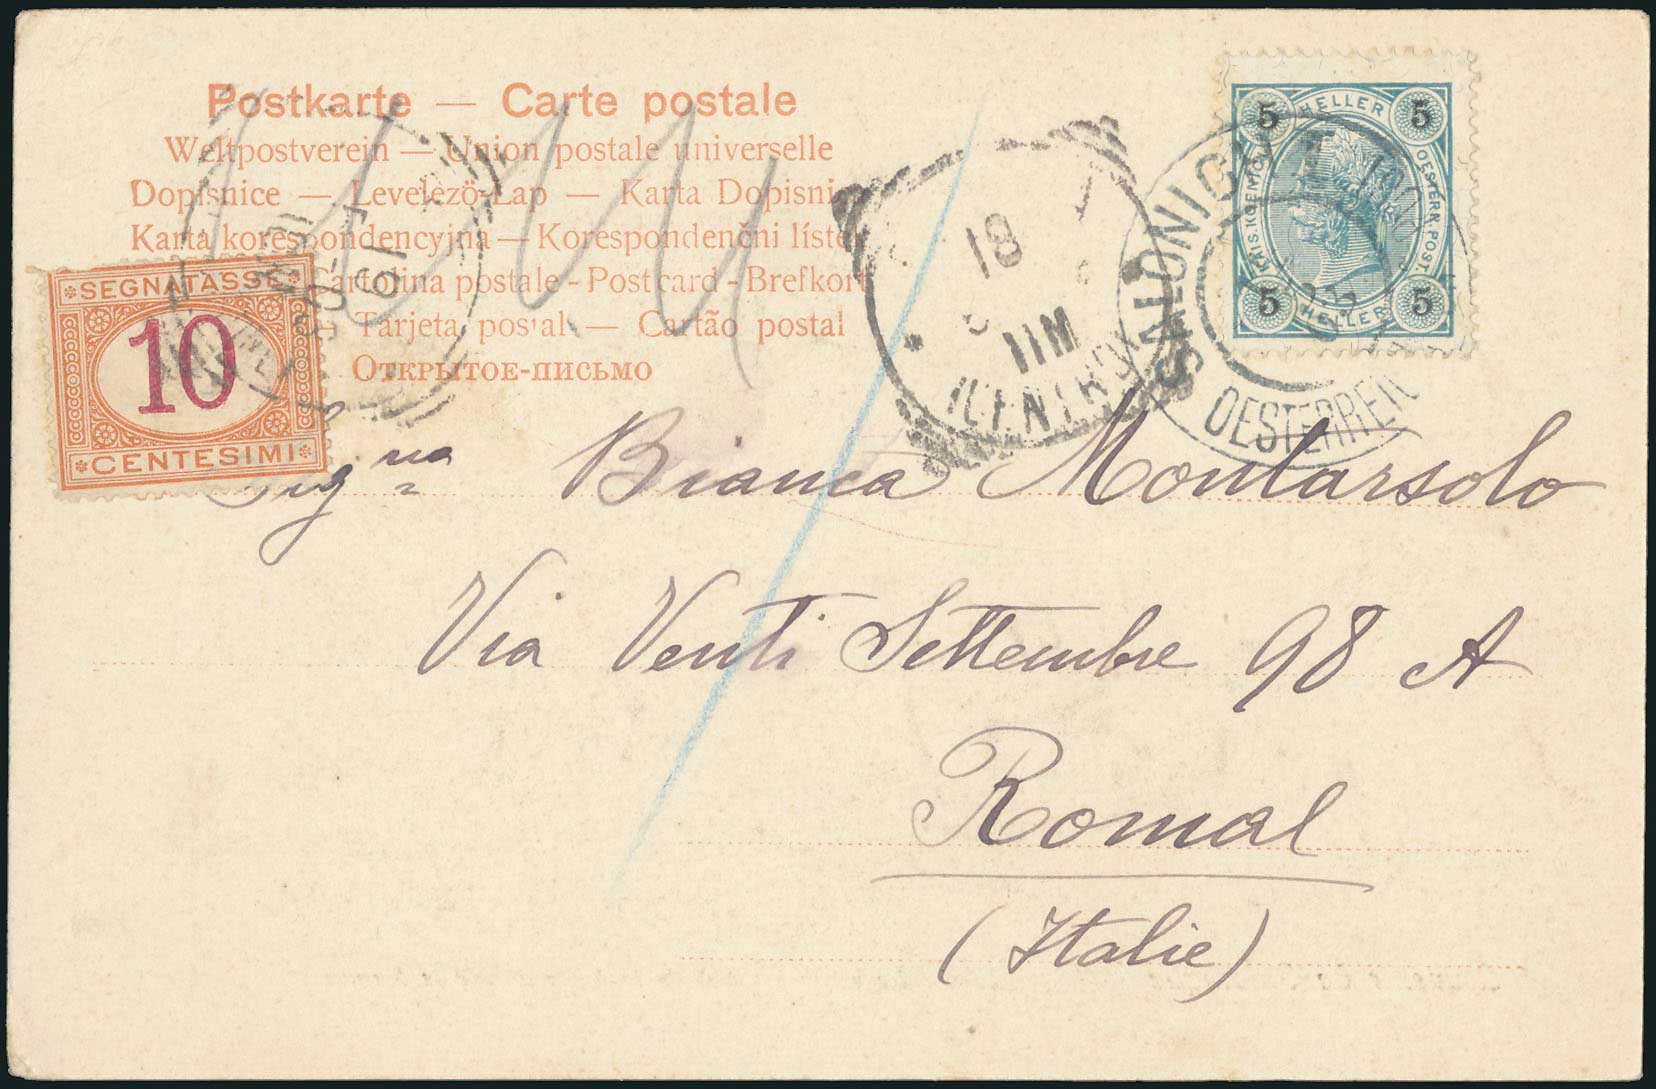 Postkarte — Carte postale
Weltpostverein — Union postale universelle
Dopisnice — Levelezö-Lap — Karta Dopisni
Karta korespondencyjna — Korespondenční líste
postale - Postcard - Brefkort
Tarjeta postal — Cartão postal
Открытое-письмо
SEGNATASSE
10
CENTESIMI
5 HELLER 5
KAIS. KOENIGL. OESTERR. POST.
5 HELLER 5
SALONICH
OESTERREICH
18
11M
CENTRO
19
Signa
Bianca Montarsolo
Via Venti Settembre 98 A
Roma
(Italie)